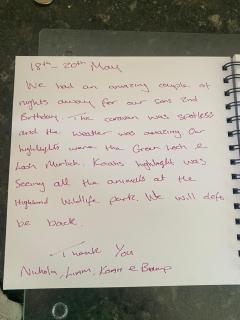 18th - 20th May
We had an amazing couple of
nights away for our sons 2nd
Birthday. The caravan was spotless
and the weather was amazing. Our
highlights were the Green Loch &
Loch Morlich. highlight was
Seeing all the animals at the
Highland Wildlife park. We will defo
be back.
Thank You
Nichola, Liam, &